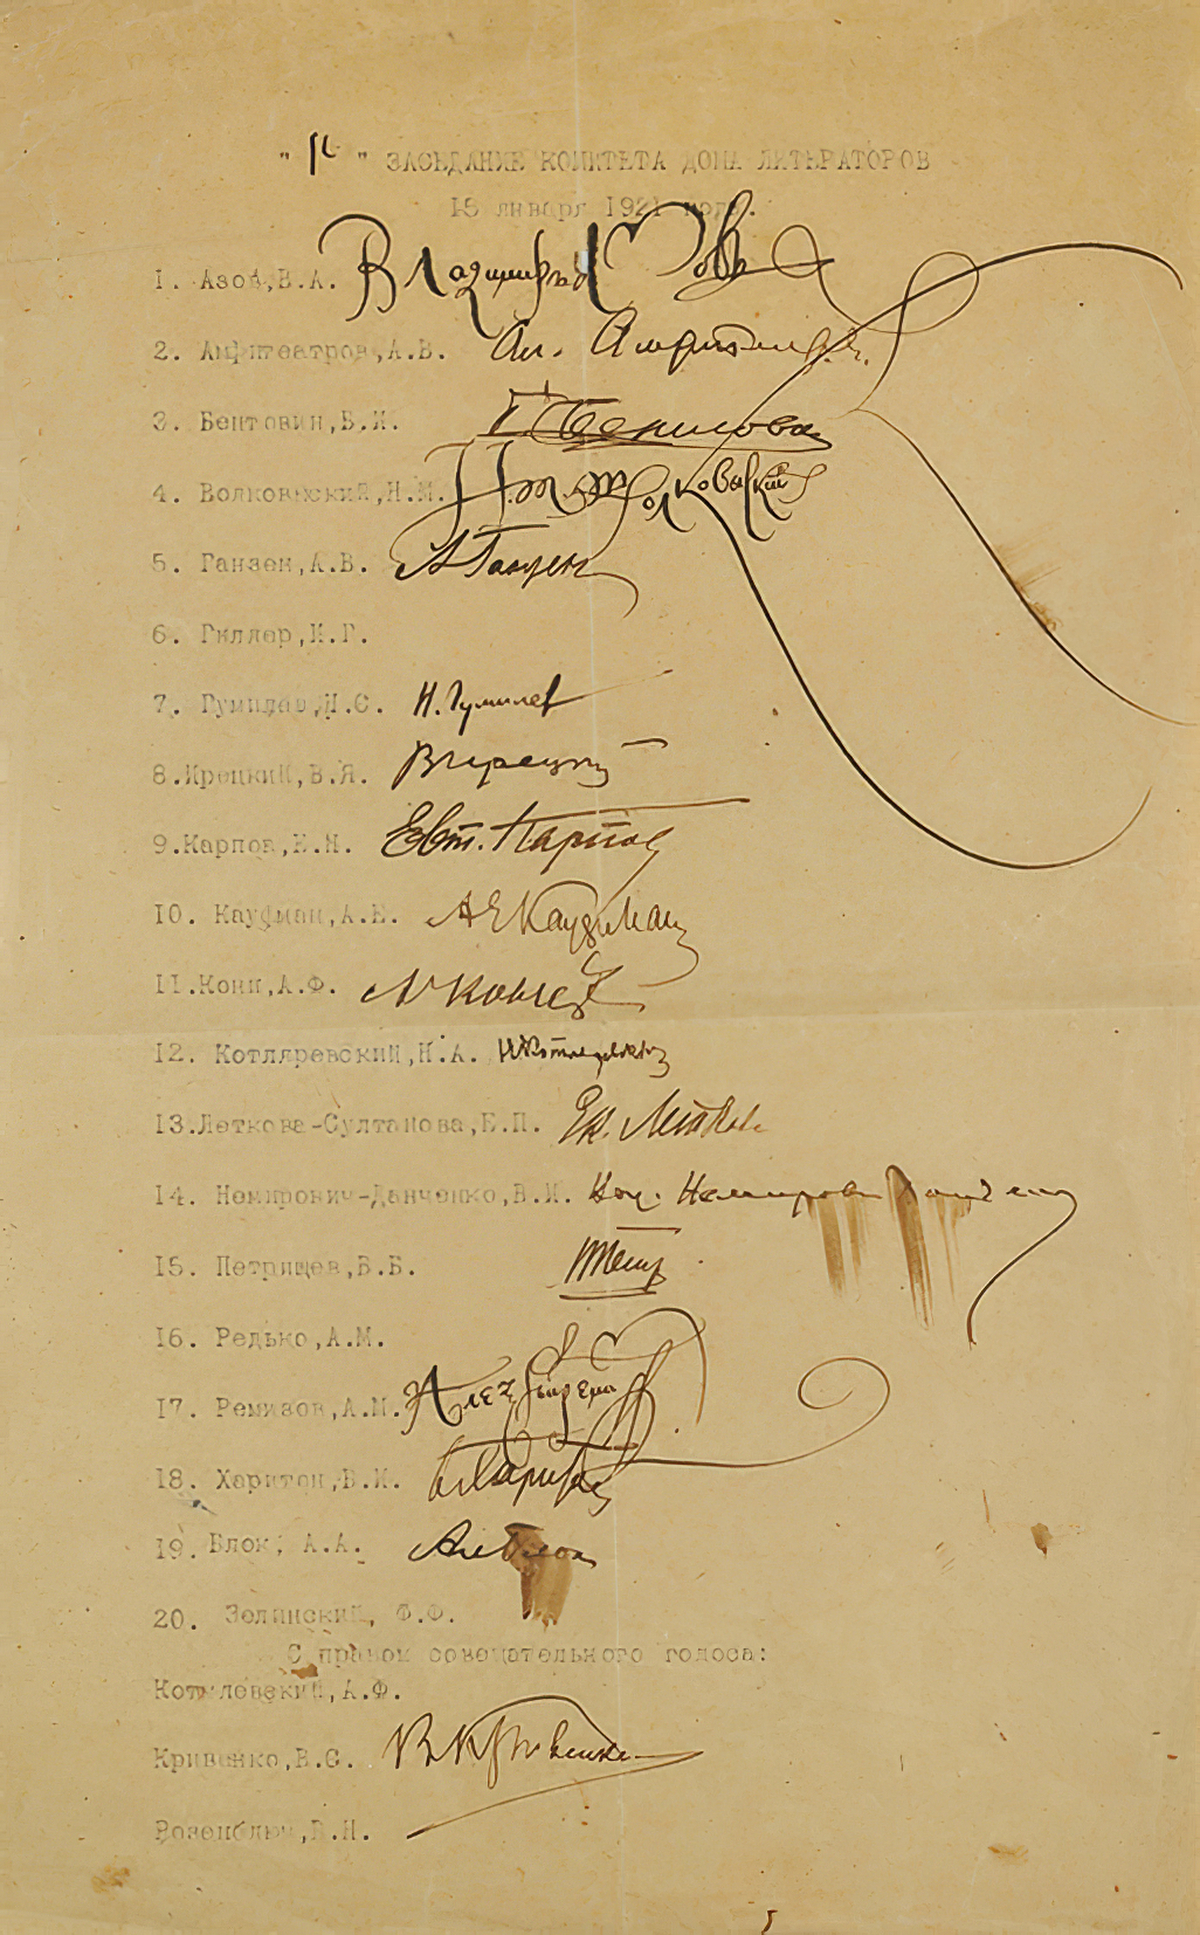 " " ЗАСѢДАНИЕ КОМИТЕТА ДОМА ЛИТЕРАТОРОВ
января 1921 года.
1. Азов,В.А. Владимир Азовъ
2. Амфитеатров,А.В. Ал. Амфитеатров
3. Бентовин,Б.И.
4. Волковысский,Н.М. Н.М. Волковысский
5. Ганзен,А.В. А Ганзен
6. Гиллер,И.Г.
7. Гумилев,Н.С. Н. Гумилев
8.Ирецкий,В.Я. В Ирецкий
9.Карпов,Е.П. Евт. Карпов
10. Кауфман,А.Е. АЕКауфман
11.Кони,А.Ф. А Кони
12. Котляревский,Н.А. Н Котляревский
13.Леткова-Султанова,Е.П. Ек. Леткова
14. Немирович-Данченко,В.И. Вас. Немирович Данченко
15. Петрищев,А.Б.
16. Редько,А.М.
17. Ремизов,А.М. Алексей Ремизов
18. Харитон,Б.И. Б Харитон
19. Блок, А.А. Ал Блок
20. Зелинский, Ф.Ф.
С правом совещательного голоса:
Котылевский,А.Ф.
Кривенко,В.С. В Кривенко
Розенблюм,В.Н.